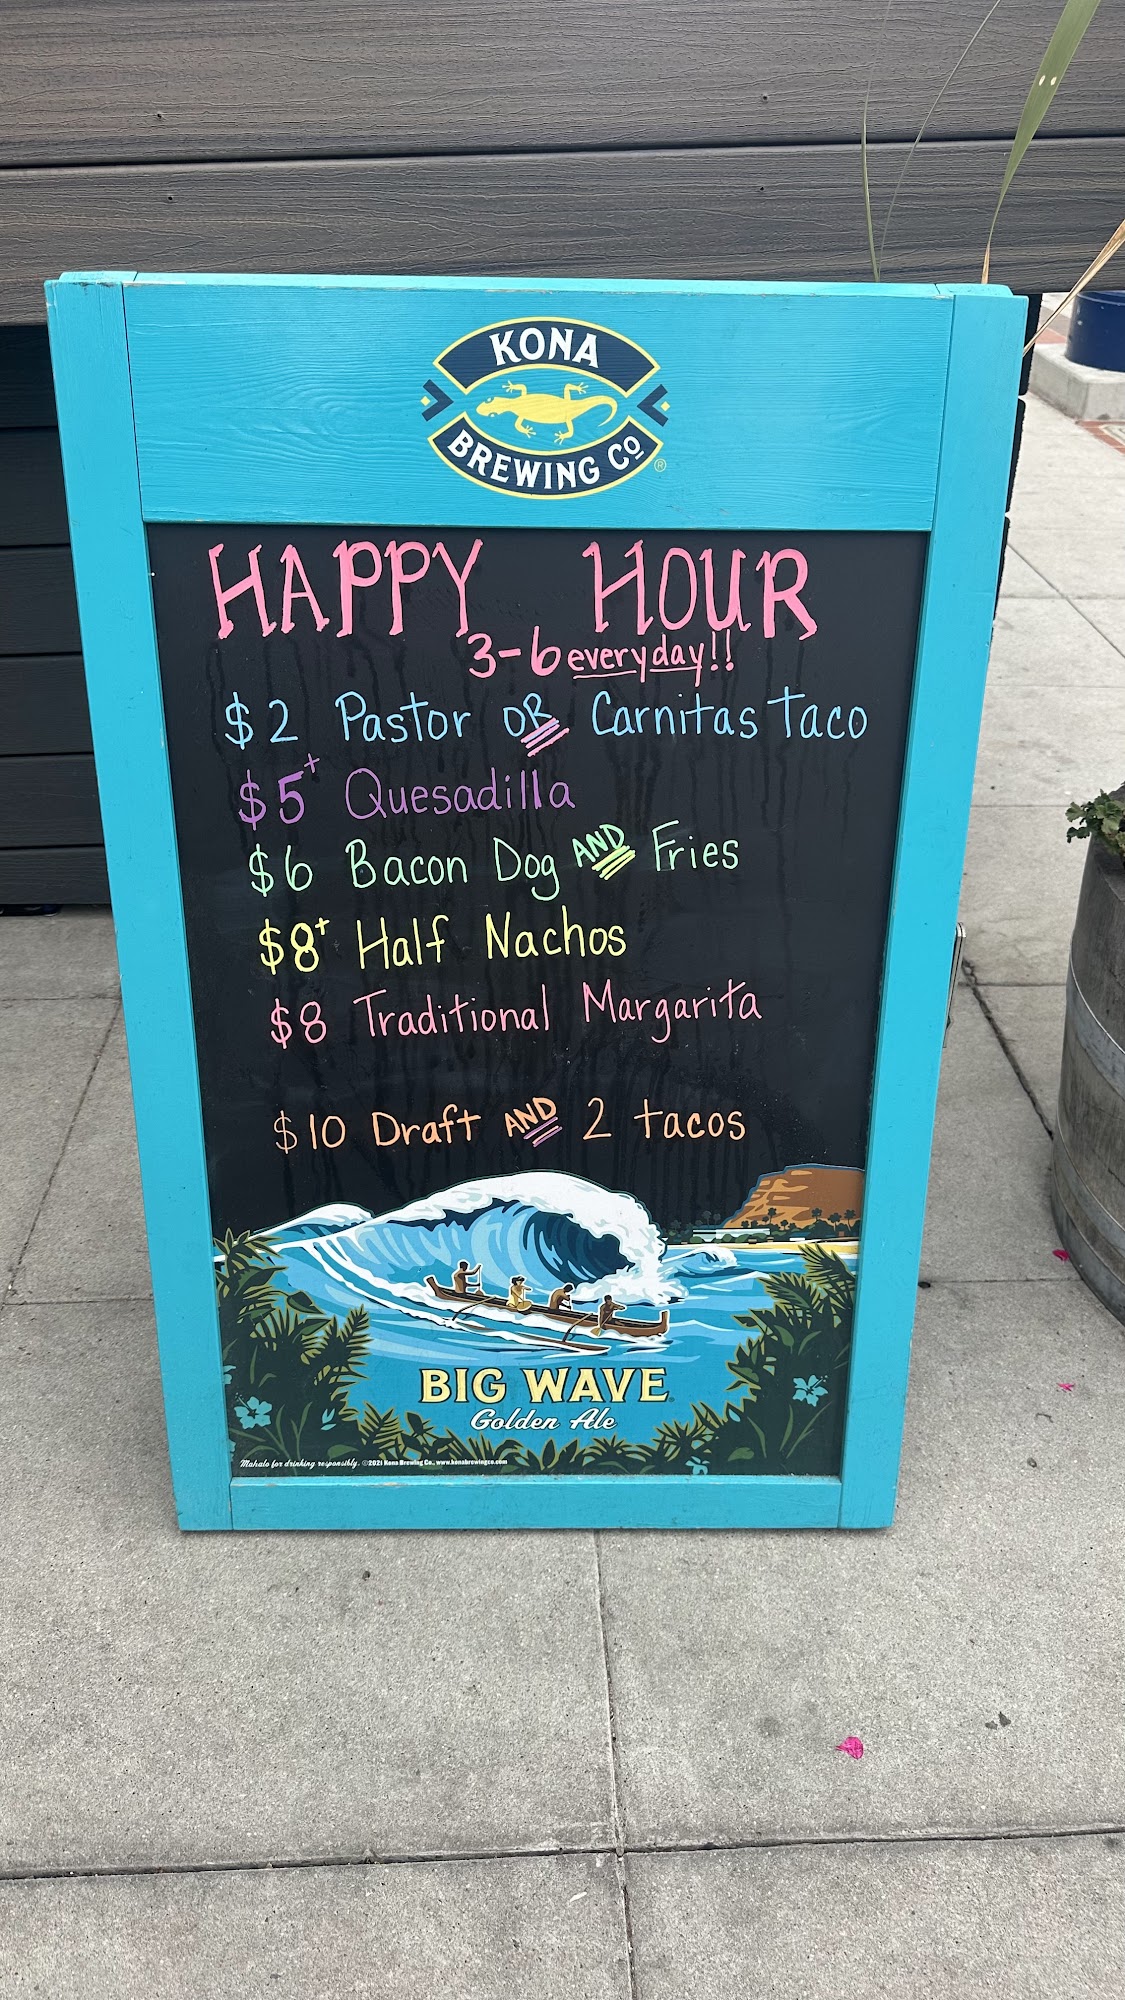 KONA
BREWING CO.®
HAPPY HOUR
3-6 everyday!!
$2 Pastor OR Carnitas Taco
$5+ Quesadilla
$6 Bacon Dog AND Fries
$8+ Half Nachos
$8 Traditional Margarita
$10 Draft AND 2 tacos
BIG WAVE
Golden Ale
Mahalo for drinking responsibly. ©2021 Kona Brewing Co., www.konabrewingco.com